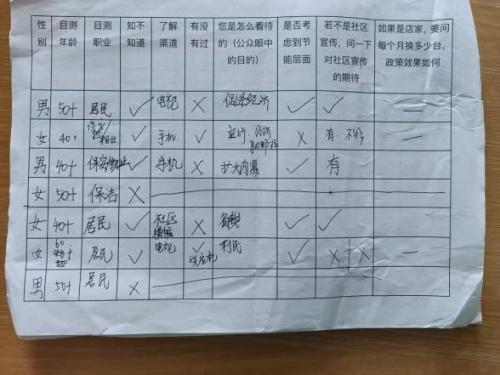 性别 目测年龄 目测职业 知不知道 了解渠道 有没有过 您是怎么看待的（公众眼中的目的） 是否考虑到节能层面 若不是社区宣传，问一下对社区宣传的期待 如果是店家，要问每个月换多少台，政策效果如何
男 50+ 居民 ✓ 电视 × 促进经济 ✓ ✓ —
女 40+ ✓ 手机 ✓ × 有 —
男 40+ 保安物业 ✓ 手机 × 扩大内需 ✓ 有 —
女 50+ 保洁 ×
女 40+ 居民 ✓ 社区 × ✓ ✓ —
女 60 居民 ✓ 电视 ✓ 洗衣机 利民 ✓ × × —
男 50+ 居民 ×